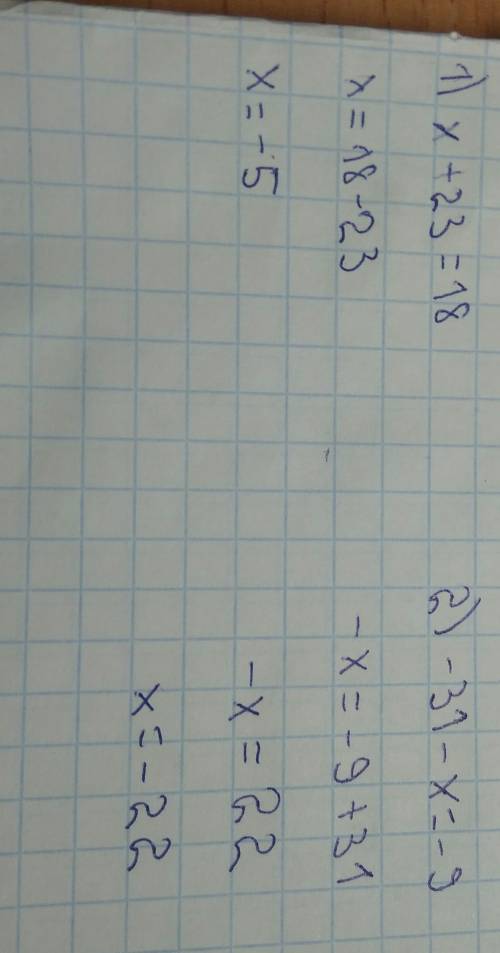 1) x + 23 = 18
x = 18 - 23
x = - 5
2) - 31 - x = - 9
- x = - 9 + 31
- x = 22
x = - 22